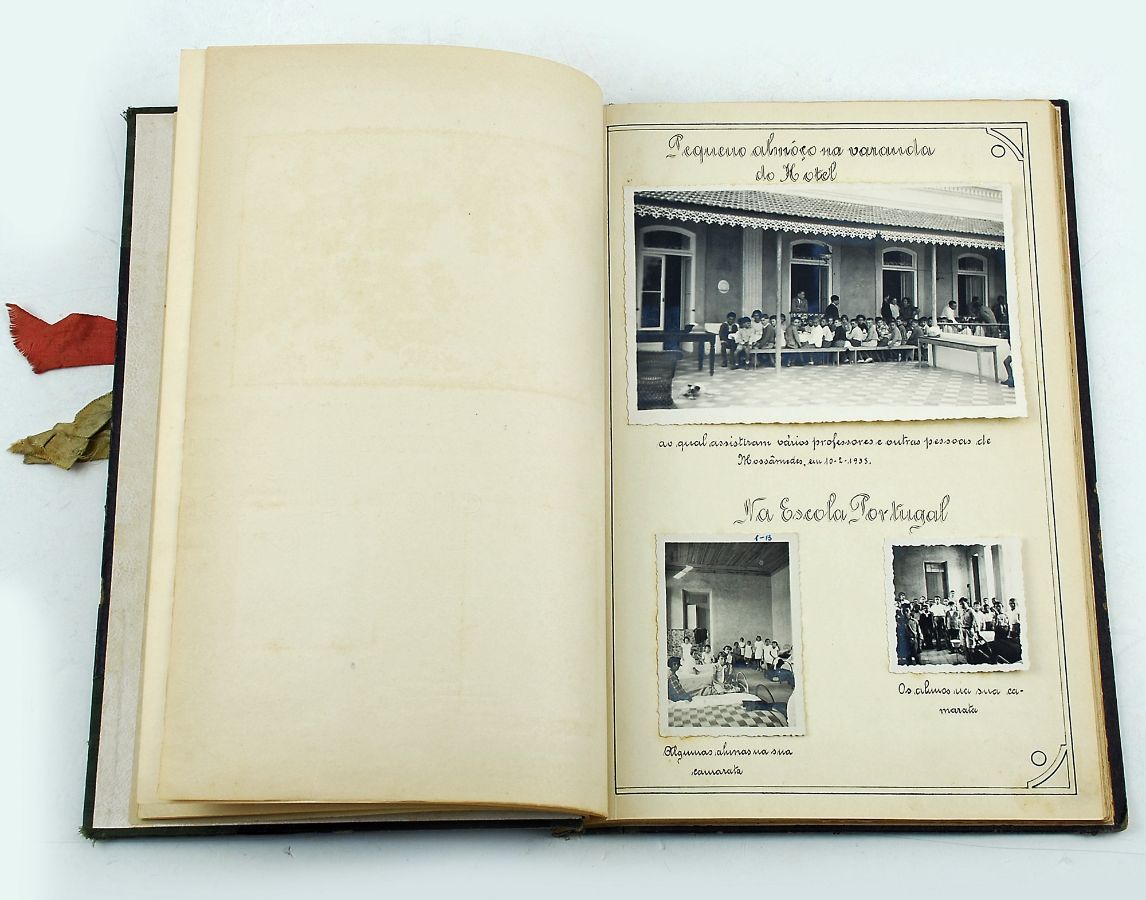 Pequeno almôço na varanda
do Hotel
ao qual assistiram vários professores e outras pessoas de
Mossâmedes, em 10-2-1938.
Na Escola Portugal
1-13
Algumas alunas na sua
camarata
Os alunos na sua ca-
marata